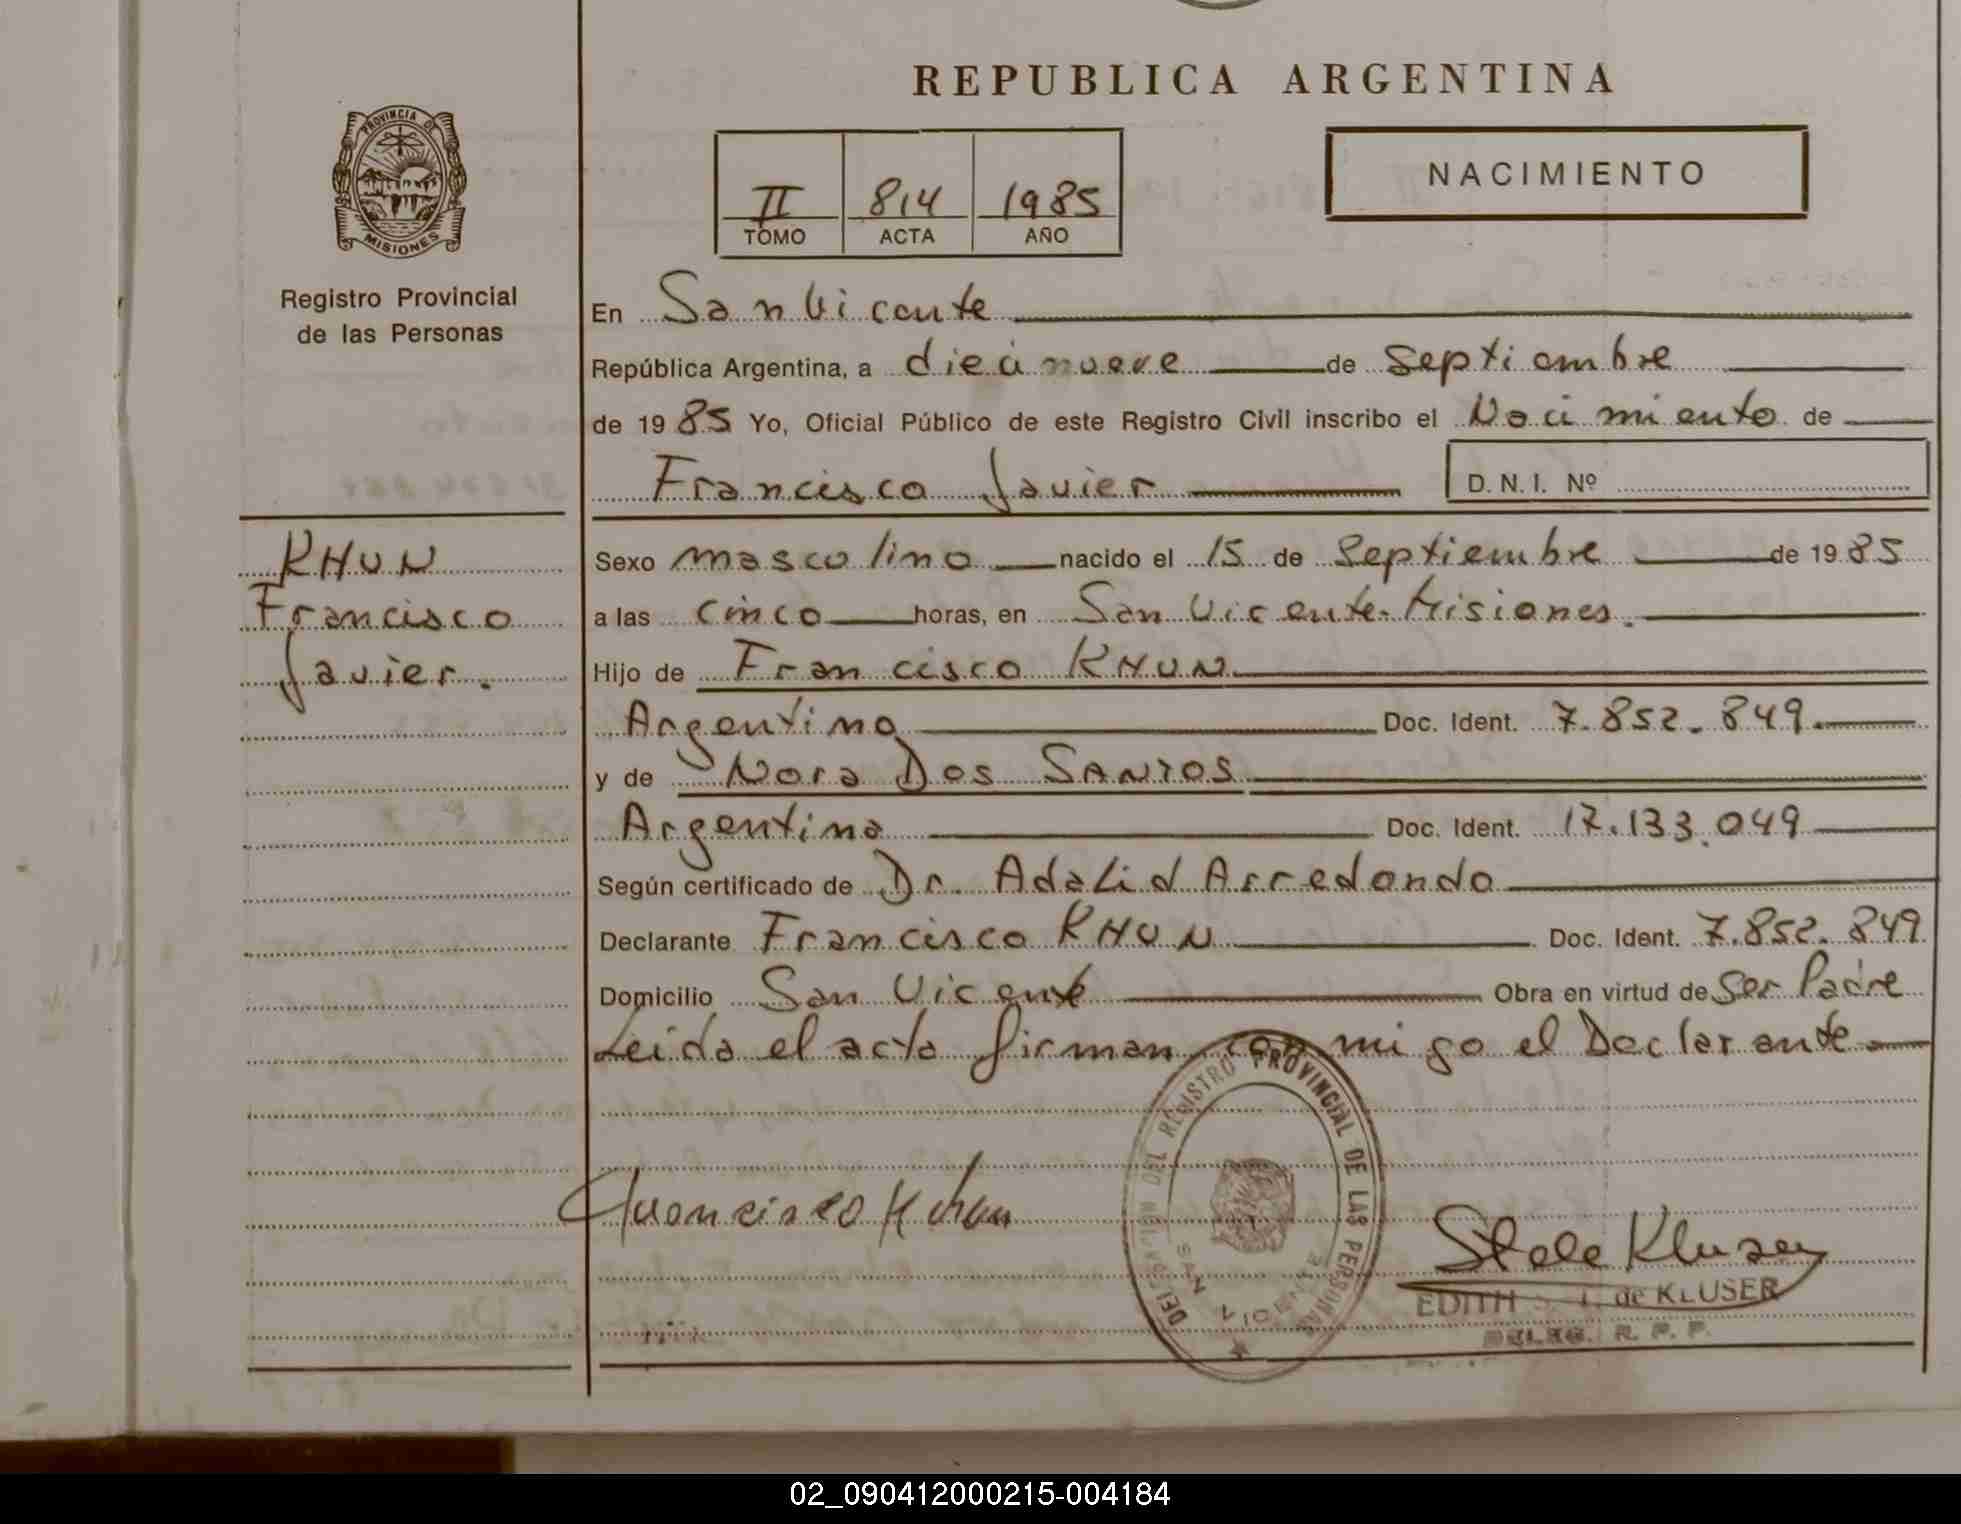 REPUBLICA ARGENTINA
PROVINCIA DE
MISIONES
Registro Provincial
de las Personas
NACIMIENTO
II 814 1985
TOMO ACTA AÑO
En San Vicente
República Argentina, a diecinueve de Septiembre
de 1985 Yo, Oficial Público de este Registro Civil inscribo el Nacimiento de
Francisco Javier D. N. I. Nº
KHUN
Francisco
Javier.
Sexo masculino nacido el 15 de Septiembre de 1985
a las cinco horas, en San Vicente-Misiones.
Hijo de Francisco KHUN
Argentino Doc. Ident. 7.852.849
y de Nora Dos SANTOS
Argentina Doc. Ident. 17.133.049
Según certificado de Dr. Adalid Arredondo
Declarante Francisco KHUN Doc. Ident. 7.852.849
Domicilio San Vicente Obra en virtud de Ser Padre
Leida el acta firman con migo el Declarante
DELEGACION DEL REGISTRO PROVINCIAL DE LAS PERSONAS
SAN VICENTE
Francisco Khun
EDITH de KLUSER
DELEG. R. P. P.
02_090412000215-004184